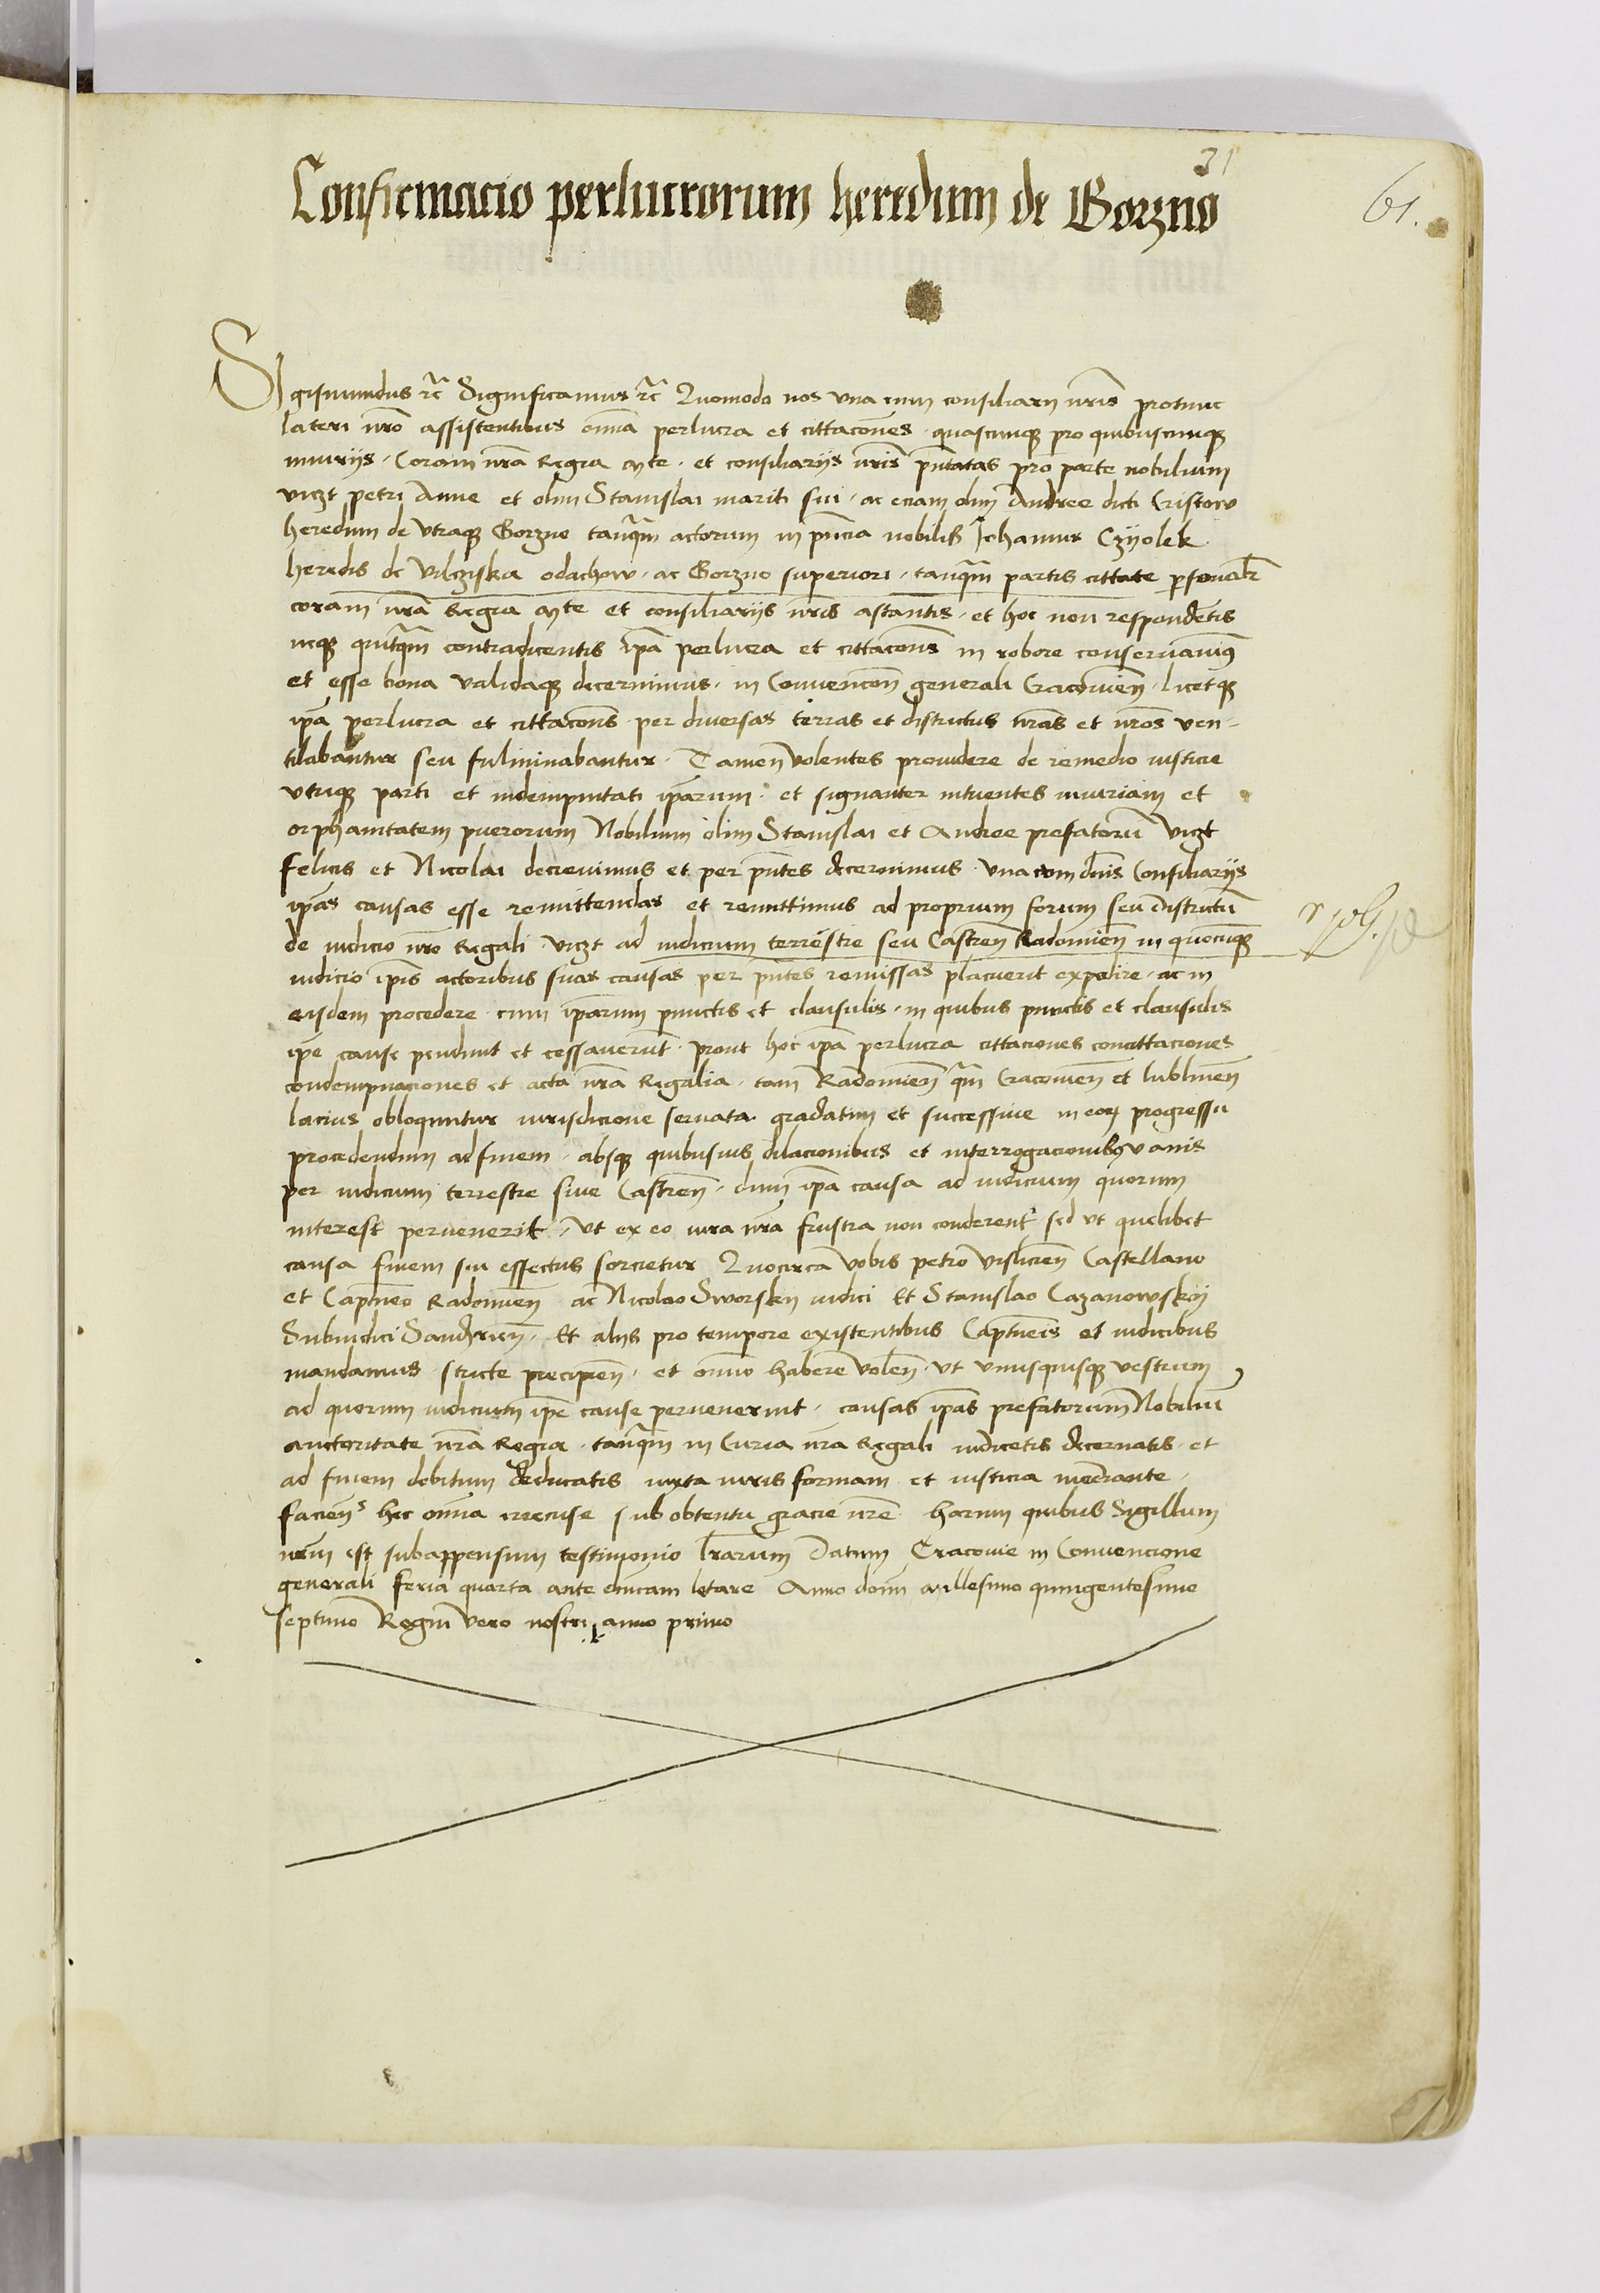 31
61.
Confirmacio perlucrorum heredum de Gorzno
Sigismundus rc̃ Significamus rc̃ Quomodo nos vna cum consiliarÿ nrĩs protunc
lateri nrõ assistentibus om̃ia perlucra et cittacões quascunqȝ pro quibuscunqȝ
iniurijs Coram nrã Regia mte et consiliarijs nrĩs pñtatas pro parte nobilium
viczt petri Anne et olim Stanislai mariti sui ac eciam olim Andree dicti Cristow
heredum de vtraqȝ Gorzno tanq̃m actorum in pñcia nobilis Johannis Czyolek
heredis de Vilcziska odachow ac Gorzno superiori tanq̃m partis cittate p̱sonal̃r
coram nrã Regia mte et consiliarijs nrĩs astantis et hoc non respondetis
neqȝ quitq̃m contradicentis ip̃a perlucra et cittacõns in robore conseruauimꝰ
et esse bona validaqȝ decernimus in Convencõne generali Cracouien̄ licetqȝ
ip̃a perlucra et cittacõns per diuersas terras et districtus nrãs et nrõs ven-
tilabantur seu fulminabantur Tamen volentes prouidere de remedio iusticie
vtriqȝ parti et indempnitati ip̃arum et signanter intuentes iniuriam et
orphanitatem puerorum Nobilium olim Stanislai et Andree prefatorũ viczt
felicis et Nicolai decreuimus et per pñtes decernimus vna cum dñis Consiliarijs
ip̃as causas esse remittendas et remittimus ad proprium forum seu districtũ
de iudicio nrõ Regali viczt ad iudicium terrestre seu Castren̄ Radomien̄ in quocunqȝ
iudicio ip̃is actoribus suas causas per pñtes remissas placuerit expedire ac in
eisdem procedere cum ip̃arum punctis et clausulis in quibus punctis et clausulis
ip̃e cause pendunt et cessauerunt prout hoc ip̃a perlucra cittaciones concittaciones
condempnaciones et acta nrã Regalia tam Radomien̄ q̃m Cracouien̄ et lublinen̄
lacius obloquntur iurisdicione seruata gradatim et successiue in eorꝝ progressu
procedendum ad finem absqȝ quibusuis dilacionibus et interrogacionibꝰ vanis
per iudicium terrestre siue Castren̄ dum ip̃a causa ad iudicium quorum
interest peruenerit vt ex eo iura nrã frustra non conderent̃ sed vt quelibet
causa finem sui effectus sorcietur Quocirca vobis petro vislicien̄ Castellano
et Capitneo Radomien̄ ac Nicolao Sworsky iudici Et Stanislao Cazanowsky
Subiudici Sandomirien̄ Et alijs pro tempore existentibus Captneis et iudicibus
mandamus stricte precipien̄ et oĩno habere volen̄ vt vnusquisqȝ vestrum
ad quorum iudicium ip̃e cause peruenerint causas ip̃as prefatorum Nobiliũ
auctoritate nrã Regia tanq̃m in Curia nrã Regali iudicetis decernatis et
ad finem debitum deducatis iuxta iuris formam et iusticia mediante
facien̄s hec om̃ia sub obtentu gracie nrẽ harum quibus Sigillum
nrũm est subappensum testimonio lr̃arum Datum Cracouie in Convencione
generali feria quarta ante dnĩcam letare Anno doñi millesimo quingentesimo
septimo Regni vero nostri anno primo